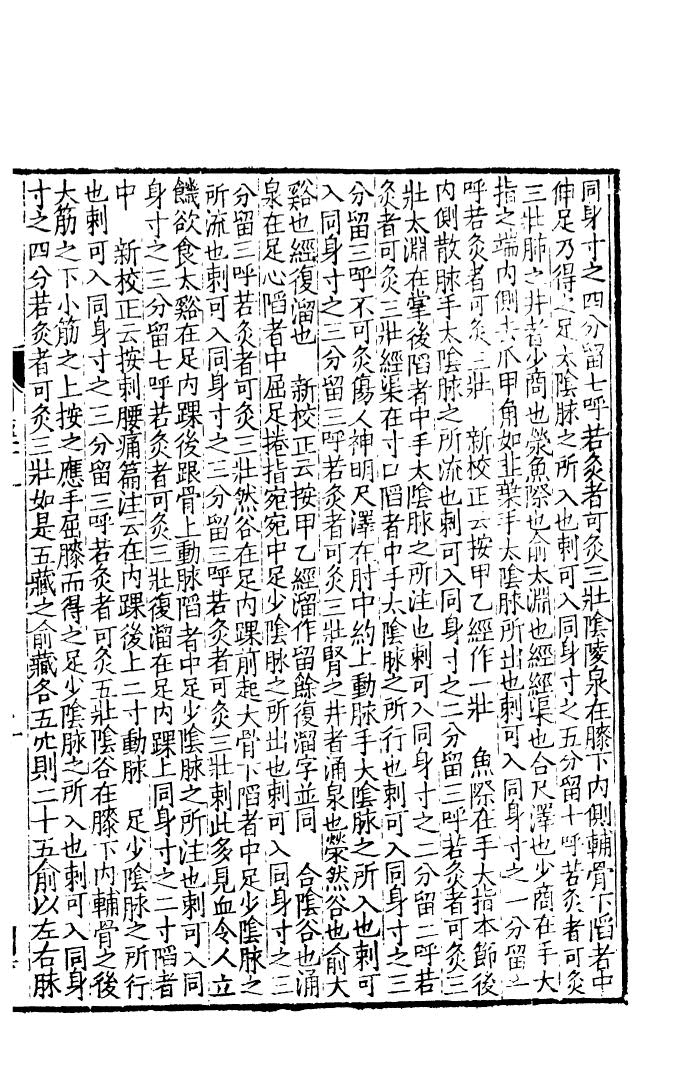 同身寸之四分留七呼若灸者可灸三壯陰陵泉在膝下内側輔骨下陷者中
伸足乃得之足太陰脉之所入也刺可入同身寸之五分留十呼若灸者可灸
三壯肺之井者少商也滎魚際也俞太淵也經經渠也合尺澤也少商在手大
指之端内側去爪甲角如韭葉手太陰脉所出也刺可入同身寸之一分留一
呼若灸者可灸三壯　新校正云按甲乙經作一壯　魚際在手大指本節後
内側散脉手太陰脉之所流也刺可入同身寸之二分留三呼若灸者可灸三
壯太淵在掌後陷者中手太陰脉之所注也刺可入同身寸之二分留二呼若
灸者可灸三壯經渠在寸口陷者中手太陰脉之所行也刺可入同身寸之三
分留三呼不可灸傷人神明尺澤在肘中約上動脉手太陰脉之所入也刺可
入同身寸之三分留三呼若灸者可灸三壯腎之井者涌泉也滎然谷也俞太
谿也經復溜也　新校正云按甲乙經溜作留餘復溜字並同　合陰谷也涌
泉在足心陷者中屈足捲指宛宛中足少陰脉之所出也刺可入同身寸之三
分留三呼若灸者可灸三壯然谷在足内踝前起大骨下陷者中足少陰脉之
所流也刺可入同身寸之三分留三呼若灸者可灸三壯刺此多見血令人立
饑欲食太谿在足内踝後跟骨上動脉陷者中足少陰脉之所注也刺可入同
身寸之三分留七呼若灸者可灸三壯復溜在足内踝上同身寸之二寸陷者
中　新校正云按刺腰痛篇注云在内踝後上二寸動脉　足少陰脉之所行
也刺可入同身寸之三分留三呼若灸者可灸五壯陰谷在膝下内輔骨之後
大筋之下小筋之上按之應手屈膝而得之足少陰脉之所入也刺可入同身
寸之四分若灸者可灸三壯如是五藏之俞藏各五穴則二十五俞以左右脉